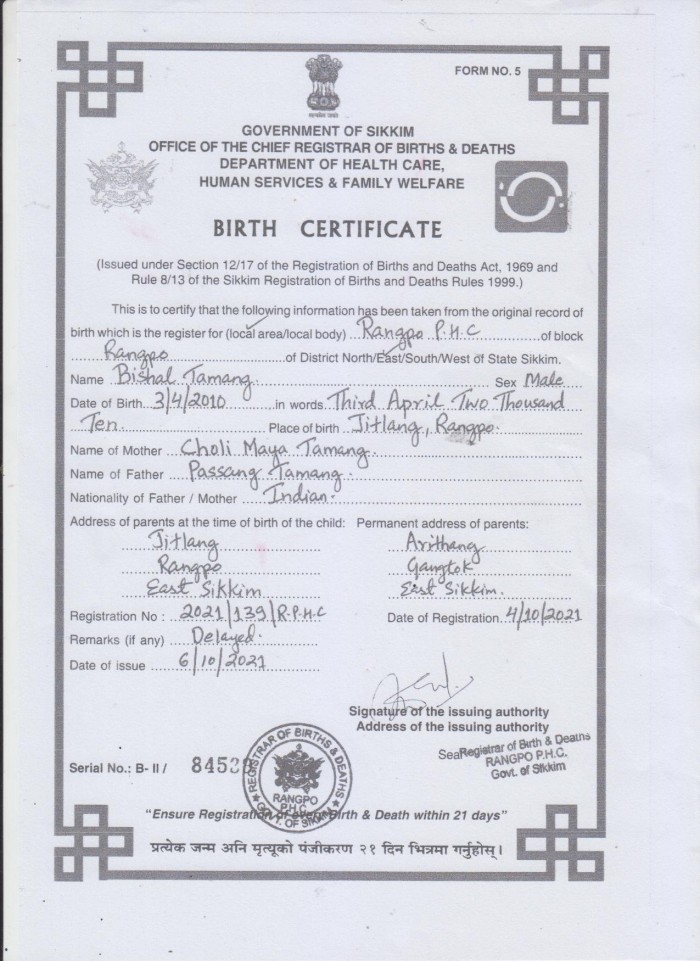 FORM NO. 5
सत्यमेव जयते
GOVERNMENT OF SIKKIM
OFFICE OF THE CHIEF REGISTRAR OF BIRTHS & DEATHS
DEPARTMENT OF HEALTH CARE,
HUMAN SERVICES & FAMILY WELFARE
BIRTH CERTIFICATE
(Issued under Section 12/17 of the Registration of Births and Deaths Act, 1969 and
Rule 8/13 of the Sikkim Registration of Births and Deaths Rules 1999.)
This is to certify that the following information has been taken from the original record of
birth which is the register for (local area/local body) Rangpo P.H.C of block
Rangpo of District North/East/South/West of State Sikkim.
Name Bishal Tamang. Sex Male
Date of Birth 3/4/2010 in words Third April Two Thousand
Ten. Place of birth Jitlang, Rangpo.
Name of Mother Choli Maya Tamang.
Name of Father Passang Tamang.
Nationality of Father / Mother Indian.
Address of parents at the time of birth of the child: Permanent address of parents:
Jitlang Arithang
Rangpo Gangtok
East Sikkim East Sikkim.
Registration No : 2021/139/R.P.H.C Date of Registration 4/10/2021
Remarks (if any) Delayed.
Date of issue 6/10/2021
Signature of the issuing authority
Address of the issuing authority
Seal Registrar of Birth & Deatns
RANGPO P.H.C.
Govt. of Sikkim
Serial No.: B- II / 8453
REGISTRAR OF BIRTHS & DEATHS
RANGPO
P.H.C.
GOVT. OF SIKKIM
"Ensure Registration of every Birth & Death within 21 days"
प्रत्येक जन्म अनि मृत्यूको पंजीकरण २१ दिन भित्रमा गर्नुहोस्।